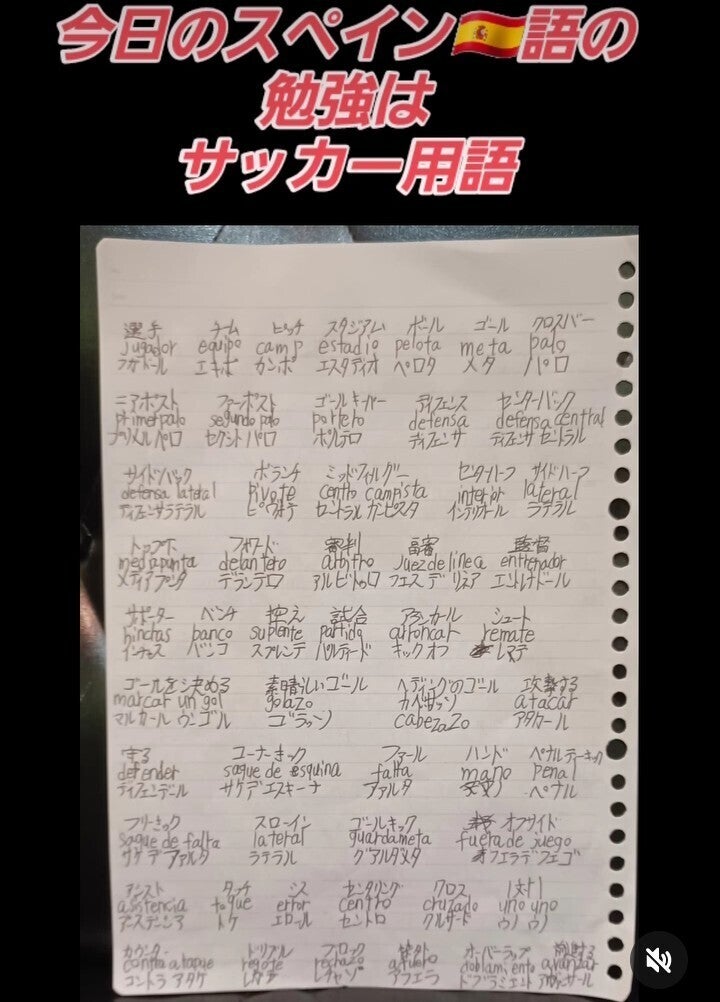 今日のスペイン🇪🇸語の
勉強は
サッカー用語
選手 チーム ピッチ スタジアム ボール ゴール クロスバー
jugador equipo camp estadio pelota meta palo
フガドール エキポ カンポ エスタディオ ペロタ メタ パロ
ニアポスト ファーポスト ゴールキーパー ディフェンス センターバック
primer palo segundo palo portero defensa defensa central
プリメルパロ セグントパロ ポルテロ ディフェンサ ディフェンサ セントラル
サイドバック ボランチ ミッドフィルダー センターハーフ サイドハーフ
defensa lateral pivote centro campista interior lateral
ディフェンサラテラル ピヴォテ セントラル カンピスタ インテリオール ラテラル
トップ下 フォワード 審判 副審 監督
mediapunta delantero arbitro juez de linea entrenador
メディアプンタ デランテロ アルビトゥロ フエス デ リネア エントレナドール
サポーター ベンチ 控え 試合 シュート
hinchas banco suplente partido arroncar remate
インチャス バンコ スプレンテ パルティード キックオフ レマテ
ゴールを決める 素晴らしいゴール ヘディングのゴール 攻撃する
marcar un gol golazo カベサッソ atacar
マルカール ウン ゴル ゴラッソ cabezazo アタカール
守る コーナーキック ファール ハンド ペナルティーキック
defender saque de esquina falta mano penal
ディフェンデール サケ デ エスキーナ ファルタ ペナル
フリーキック スローイン ゴールキック オフサイド
saque de falta lateral guardameta fuera de juego
サケ デ ファルタ ラテラル グアルダメタ フエラ デ フエゴ
アシスト タッチ ミス センタリング クロス 1対1
asistencia toque error centro cruzado uno uno
アシステンシア トケ エロール セントロ クルサード ウノ ウノ
カウンター ドリブル ブロック オーバーラップ
contra ataque regate rechazo afuera doblamiento avanzar
コントラ アタケ レガテ レチャソ アフエラ ドブラミエント アヴァンサール